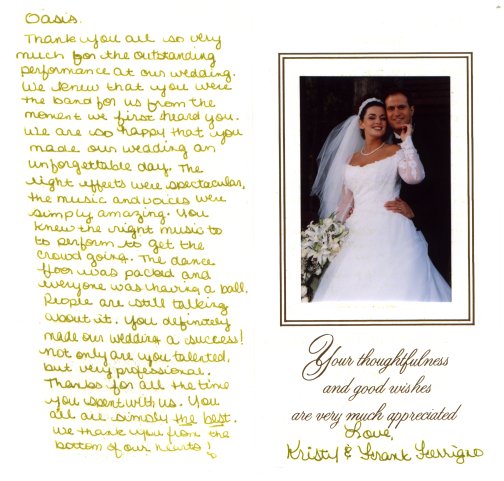 Oasis,
Thank you all so very
much for the outstanding
performance at our wedding.
We knew that you were
the band for us from the
moment we first heard you.
We are so happy that you
made our wedding an
unforgettable day. The
light effects were spectacular,
the music and voices were
simply amazing. You
knew the right music to
to perform to get the
crowd going. The dance
floor was packed and
everyone was having a ball.
People are still talking
about it. You definitely
made our wedding a success!
Not only are you talented,
but very professional.
Thanks for all the time
you spent with us. You
all are simply the best.
We thank you from the
bottom of our hearts!
Your thoughtfulness
and good wishes
are very much appreciated
Love,
Kristy & Frank Ferrigno